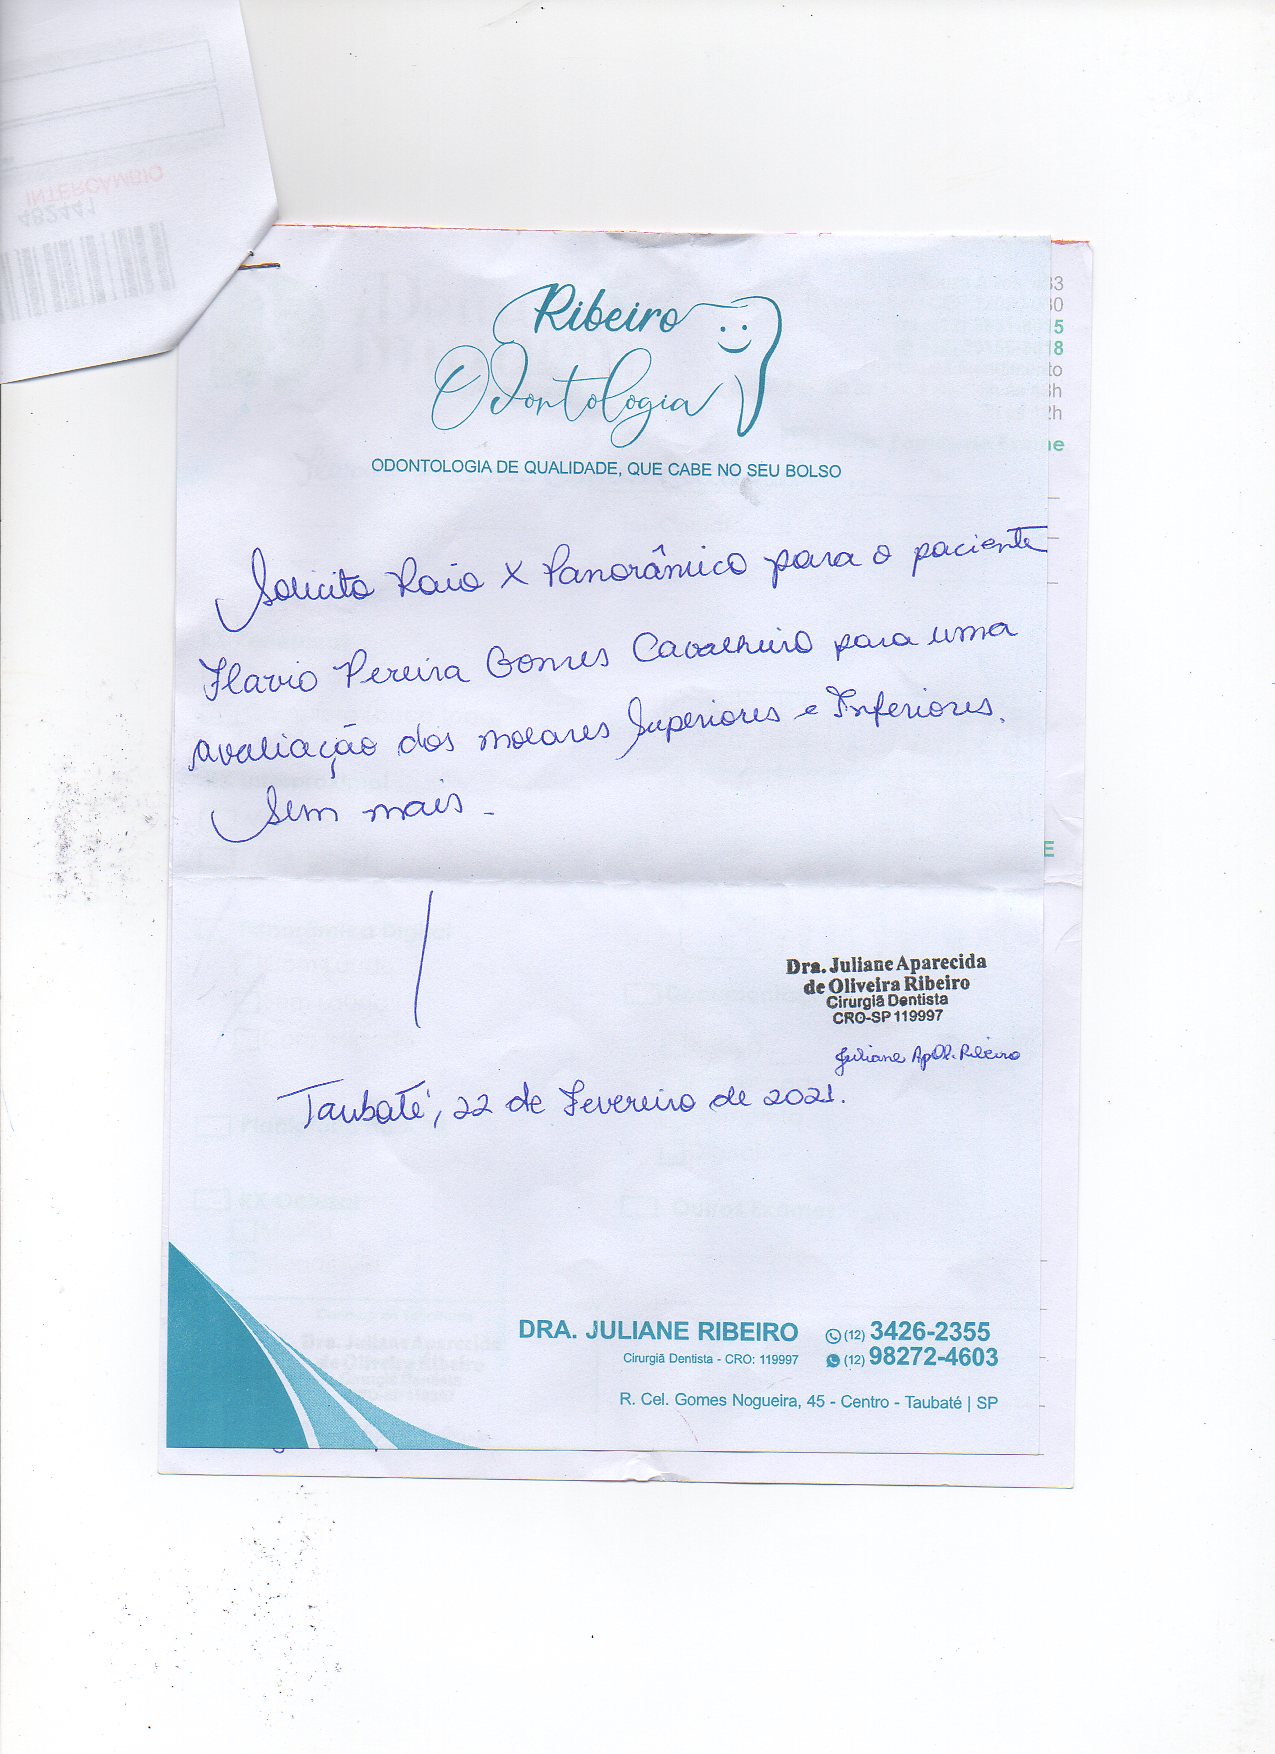 INTERCÂMBIO
482441
Ribeiro
Odontologia
ODONTOLOGIA DE QUALIDADE, QUE CABE NO SEU BOLSO
33
30
15
18
to
h
2h
ne
Solicito Raio X Panorâmico para o paciente
Flavio Pereira Gomes Cavalheiro para uma
avaliação dos molares Superiores e Inferiores.
Sem mais -
E
Dra. Juliane Aparecida
de Oliveira Ribeiro
Cirurgiã Dentista
CRO-SP 119997
Juliane Ap Ol. Ribeiro
Taubaté, 22 de Fevereiro de 2021.
DRA. JULIANE RIBEIRO (12) 3426-2355
Cirurgiã Dentista - CRO: 119997 (12) 98272-4603
R. Cel. Gomes Nogueira, 45 - Centro - Taubaté | SP